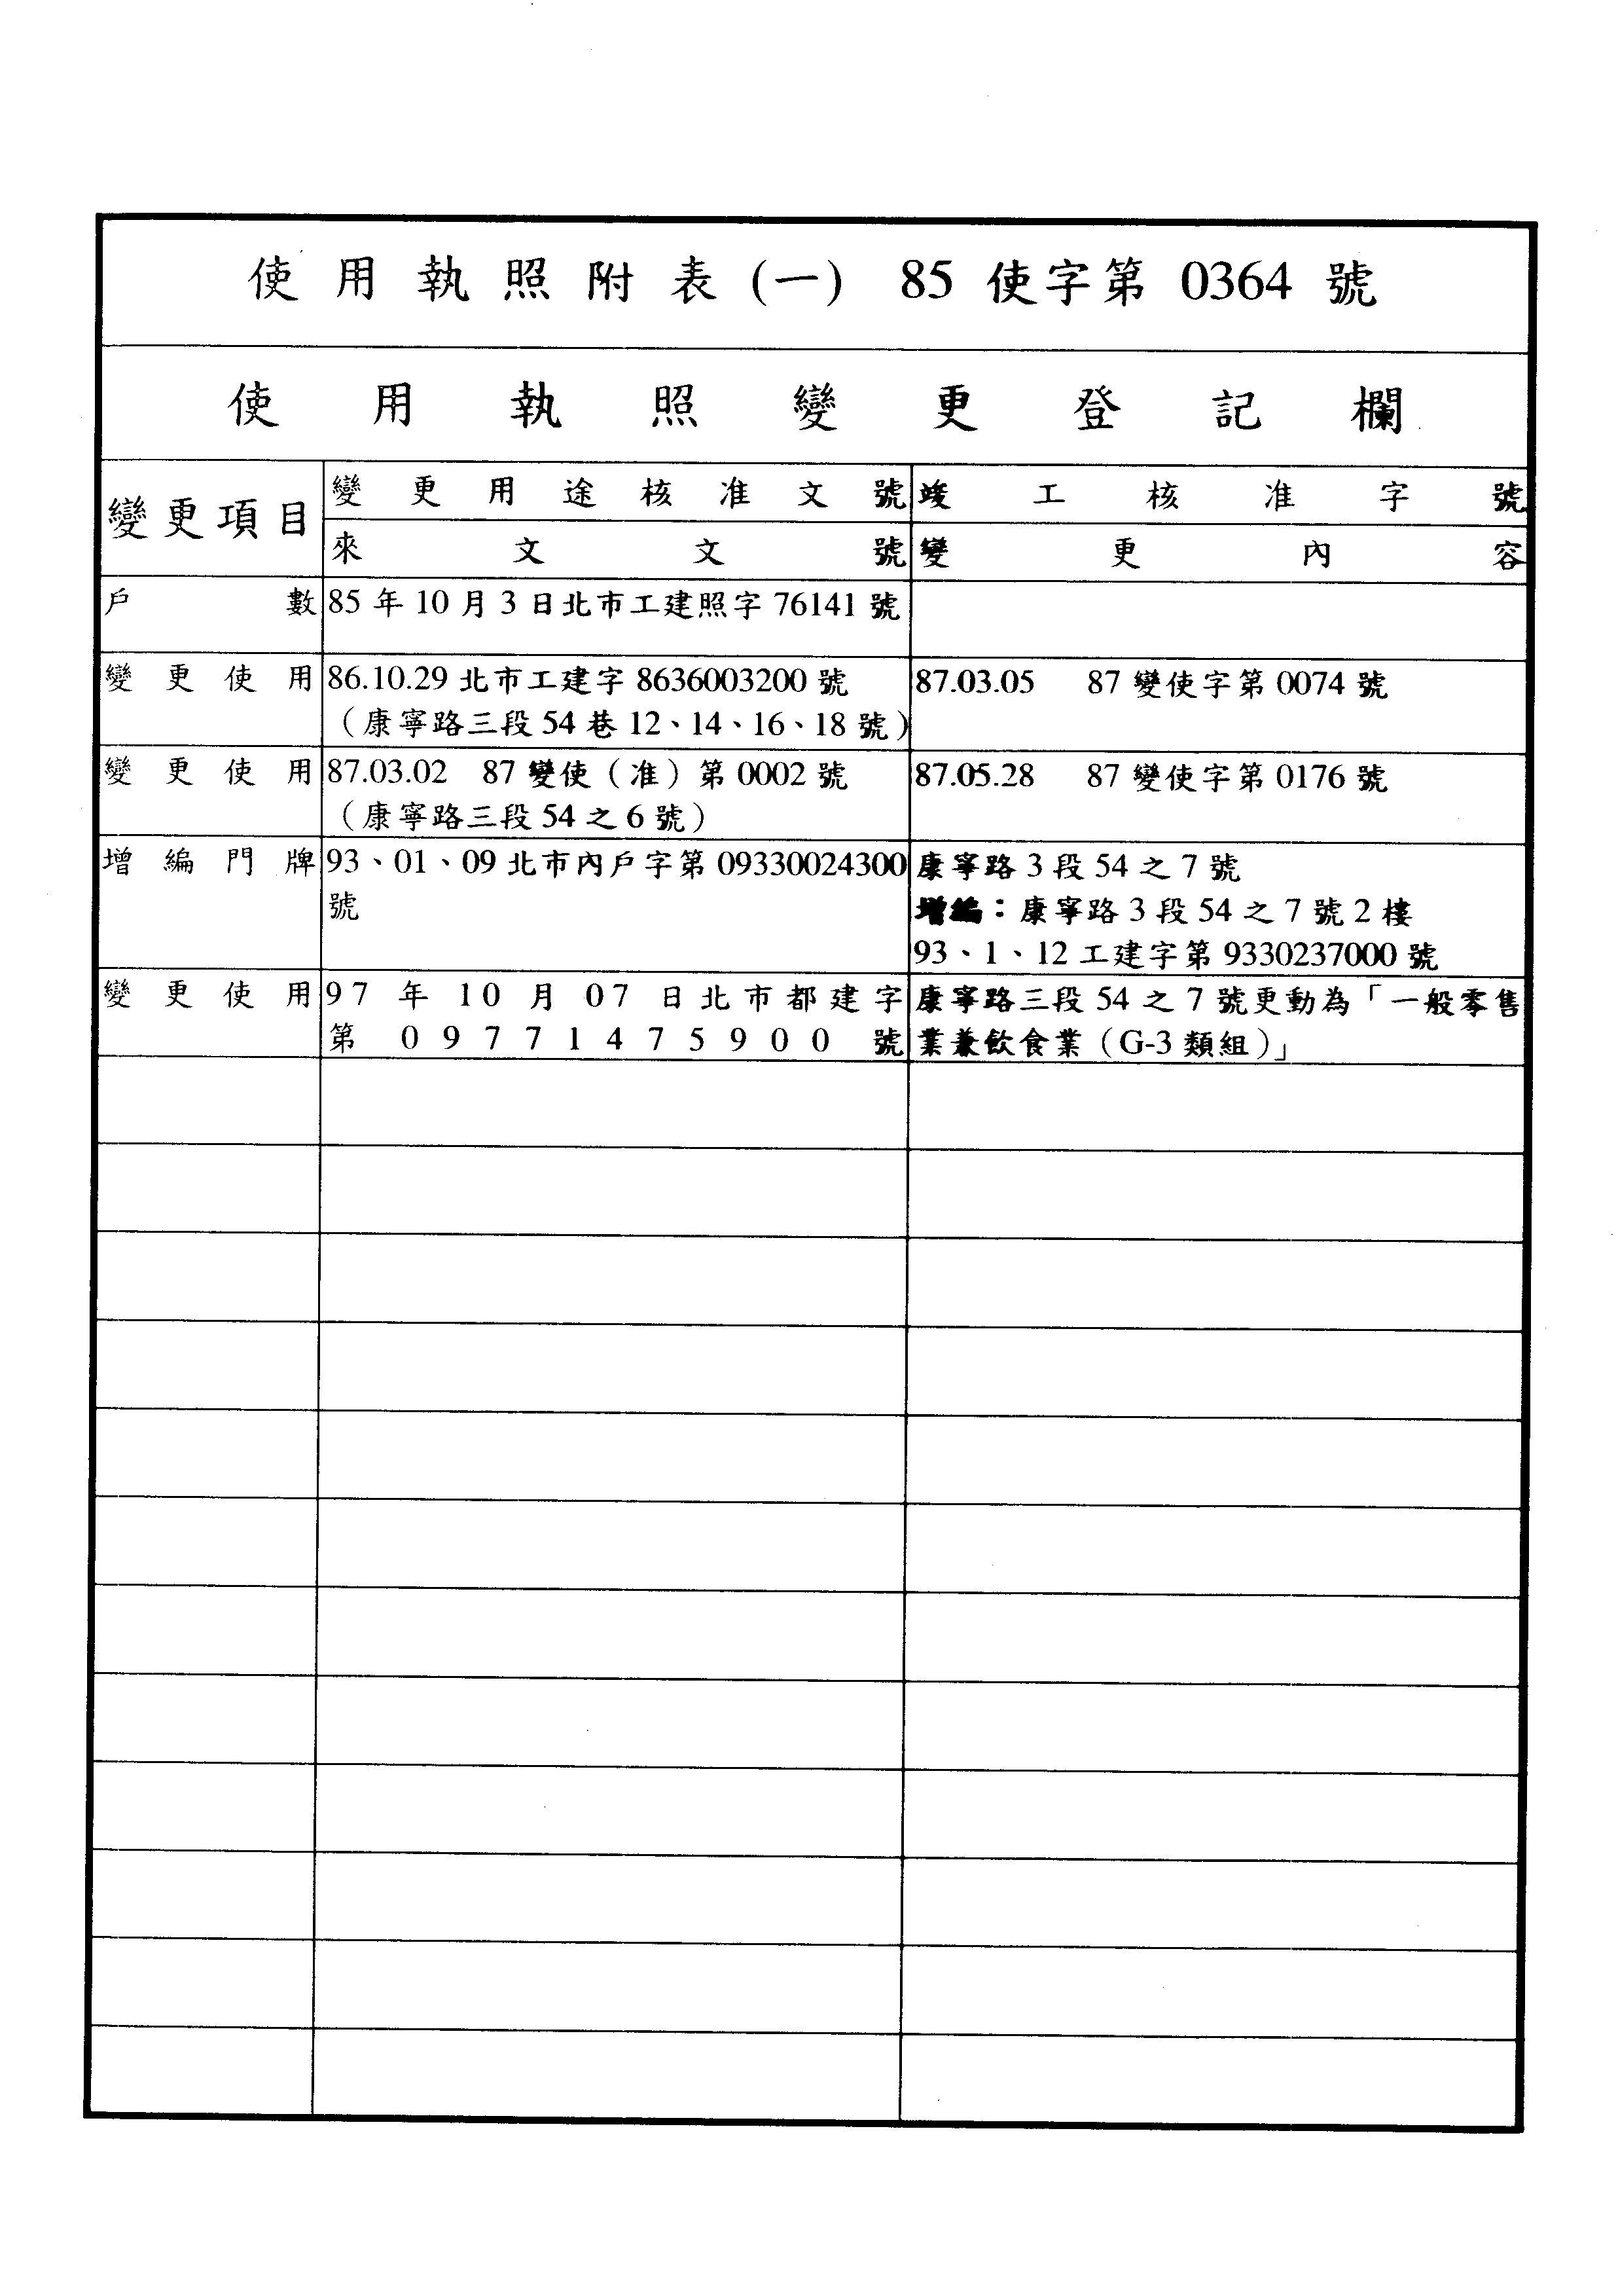 使用執照附表(一) 85 使字第 0364 號
使用執照變更登記欄
變更項目
變更用途核准文號
竣工核准字號
來文文號
變更內容
戶數
85 年 10 月 3 日北市工建照字 76141 號
變更使用
86.10.29 北市工建字 8636003200 號
(康寧路三段 54 巷 12、14、16、18 號)
87.03.05 87 變使字第 0074 號
變更使用
87.03.02 87 變使(准)第 0002 號
(康寧路三段 54 之 6 號)
87.05.28 87 變使字第 0176 號
增編門牌
93、01、09 北市內戶字第 09330024300
號
康寧路 3 段 54 之 7 號
增編:康寧路 3 段 54 之 7 號 2 樓
93、1、12 工建字第 9330237000 號
變更使用
97 年 10 月 07 日北市都建字
第 09771475900 號
康寧路三段 54 之 7 號更動為「一般零售
業兼飲食業(G-3 類組)」